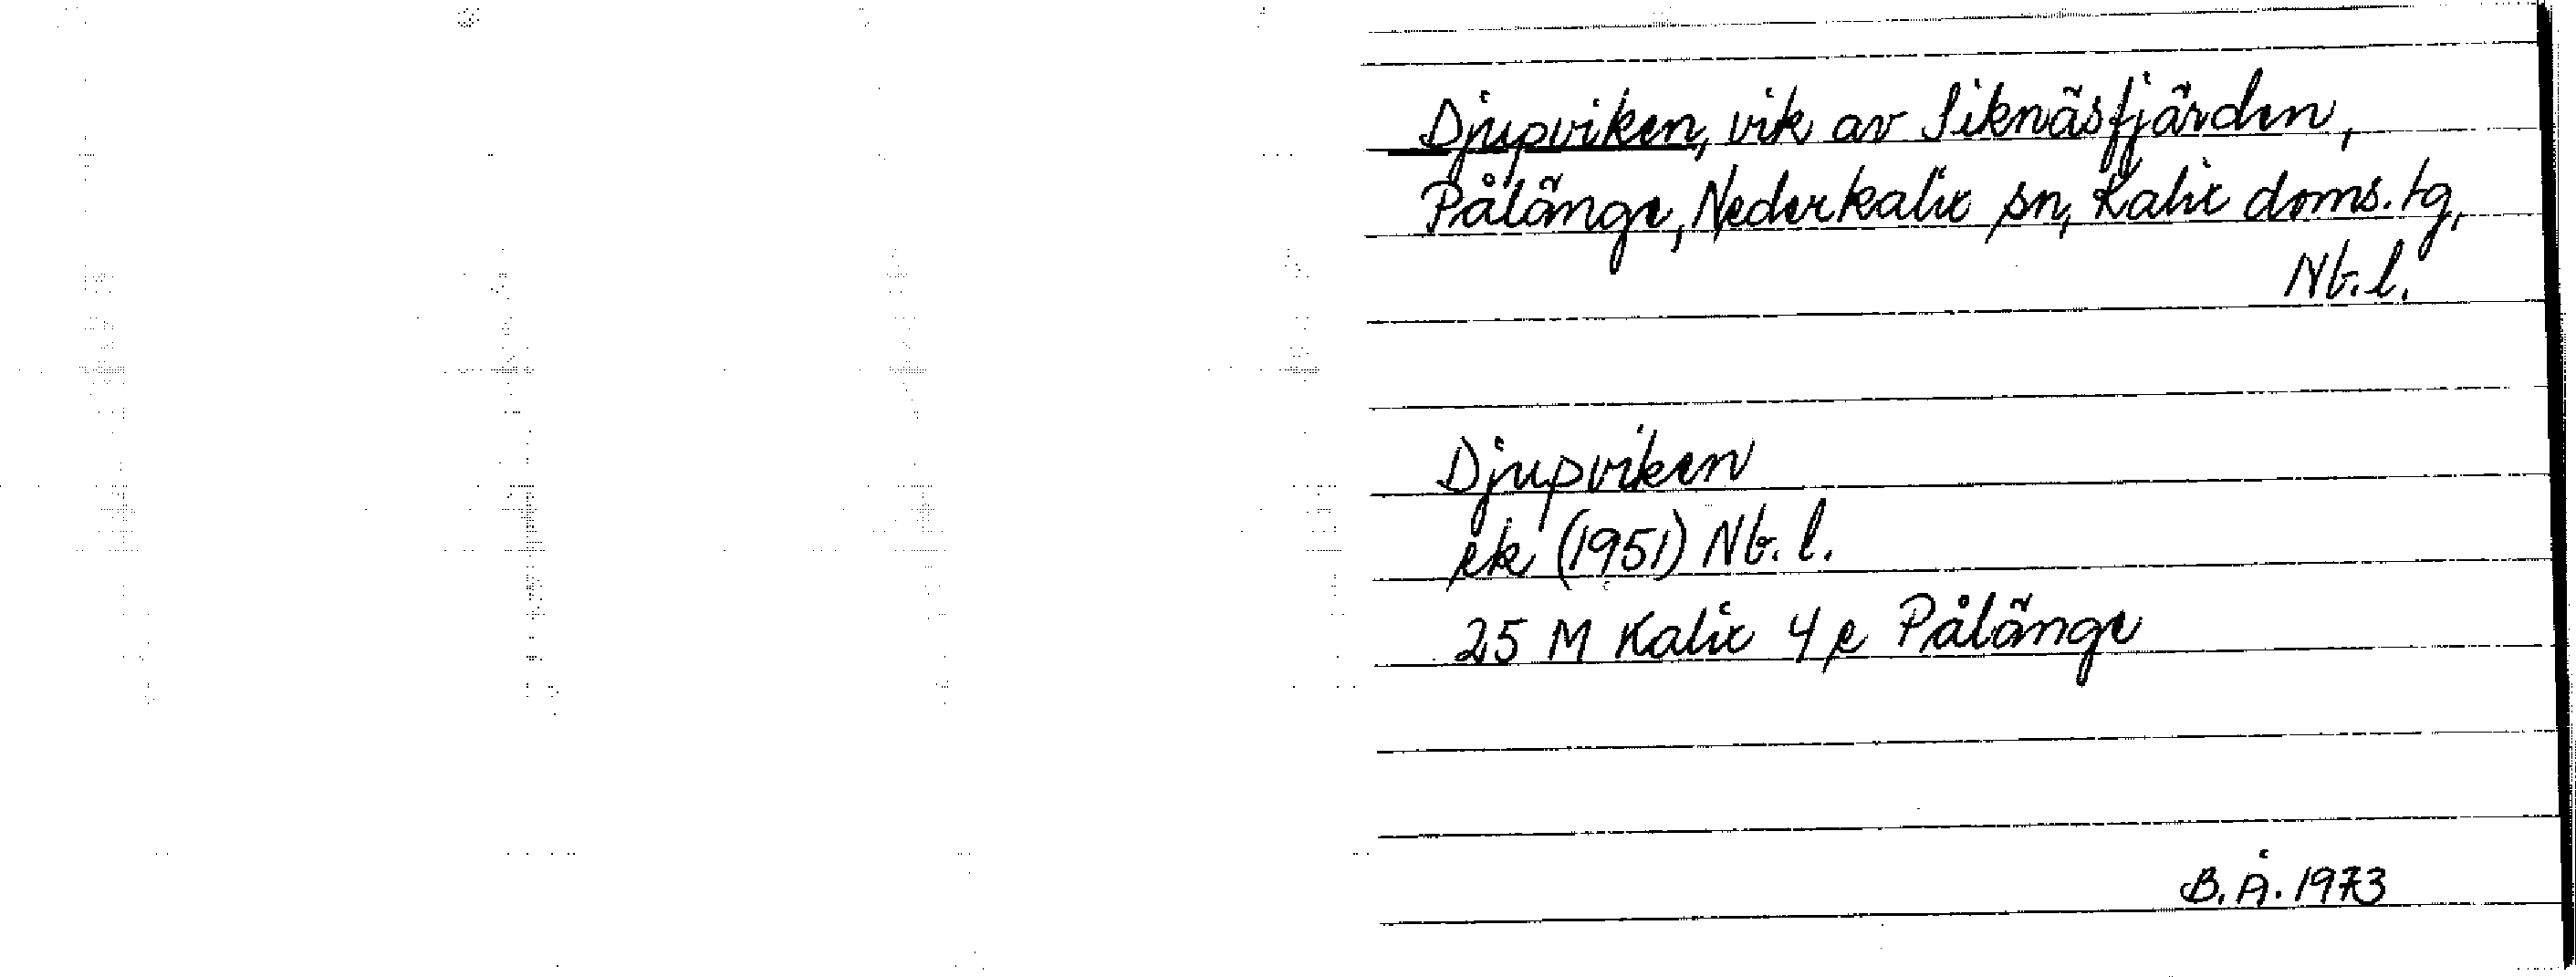 Djupviken, vik av Siknäsfjärden,
Pålänge, Nederkalix sn, Kalix doms.tg,
Nb.l.
Djupviken
ek (1951) Nb.l.
25 M Kalix 4 e Pålänge
B.Å. 1973